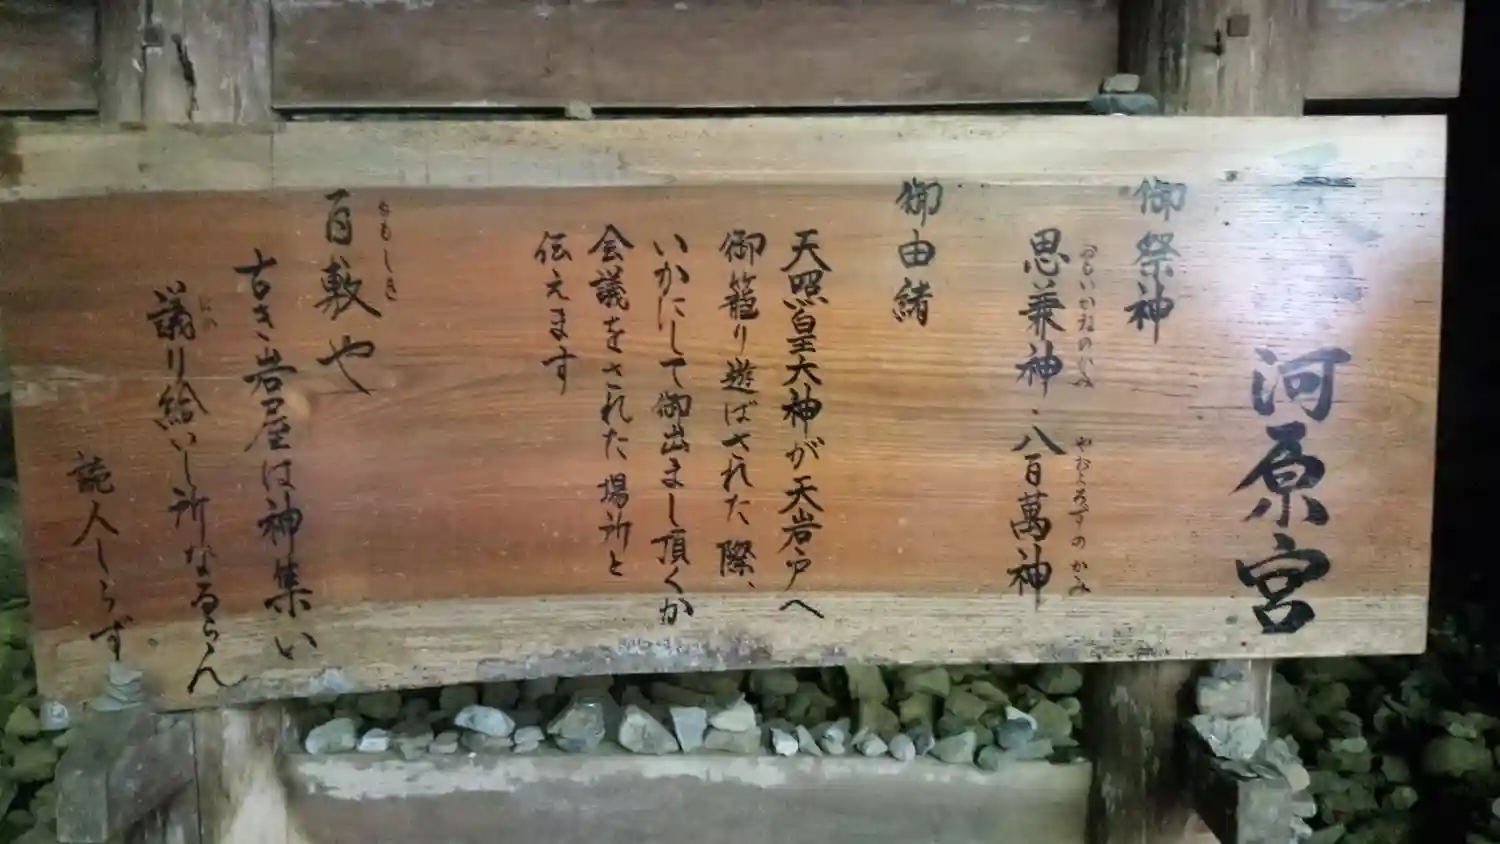 河原宮
御祭神
おもいかねのかみ やおよろずのかみ
思兼神・八百萬神
御由緒
天照皇大神が天岩戸へ
御籠り遊ばされた際、
いかにして御出まし頂くか
会議をされた場所と
伝えます
ももしき
百敷や
古き岩屋は神集い
議り給いし所なるらん
読人しらず